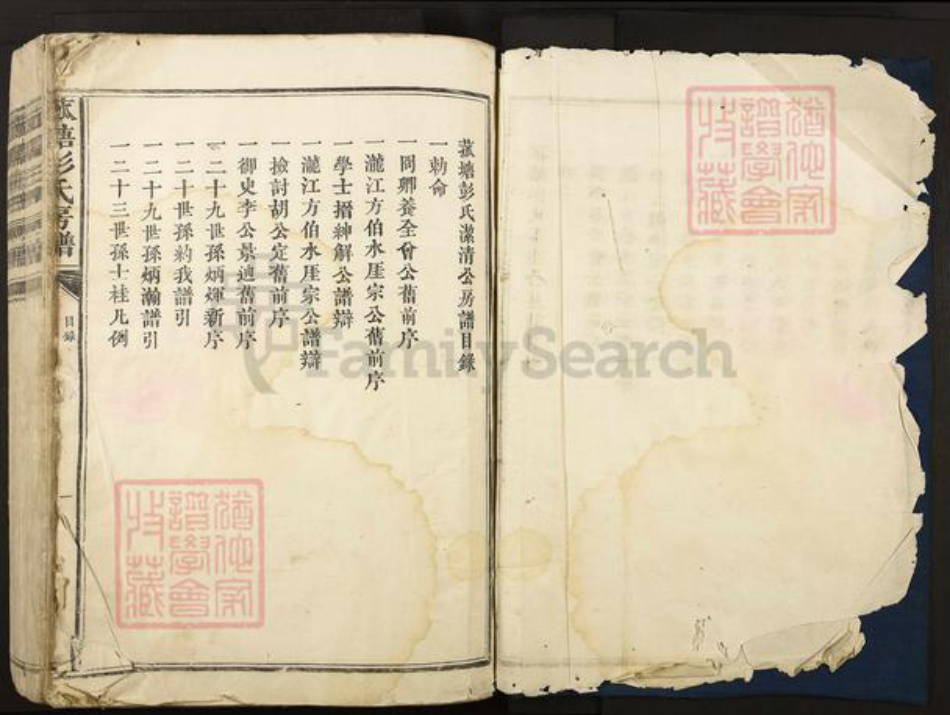 菰塘彭氏潔清公房譜目錄
一勅命
一同卿養全曾公舊前序
一瀧江方伯水厓宗公舊前序
一學士搢紳解公譜辯
一瀧江方伯水厓宗公譜辯
一檢討胡公定舊前序
一御史李公景迪舊前序
一二十九世孫炳煇新序
一二十世孫約我譜引
一二十九世孫炳瀚譜引
一二十三世孫士桂凡例
菰塘彭氏房譜
目錄
一
FamilySearch
猶他家譜學會收藏
猶他家譜學會收藏